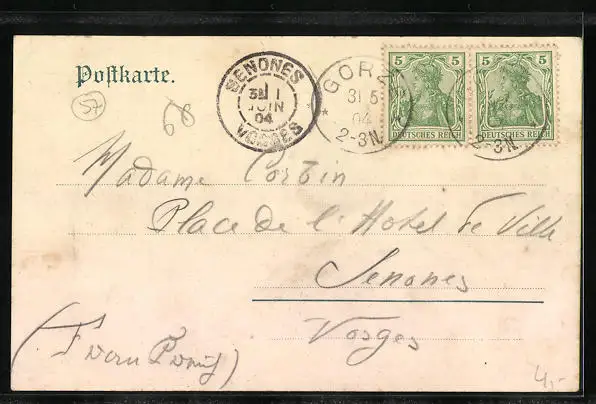 Postkarte.
57
68
SENONES
3E 1
JUIN
04
VOSGES
GORZ
31 5
04
2-3N.
5 5
DEUTSCHES REICH
5 5
DEUTSCHES REICH
2-3N.
Madame Corbin
Place de l'Hotel de Ville
Senones
Vosges
4,-